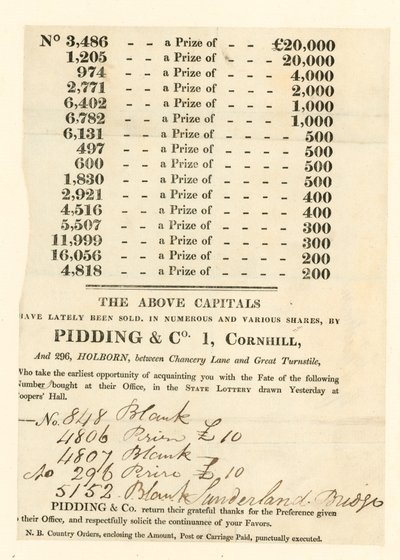 No 3,486 - - a Prize of - - - £20,000
1,205 - - a Prize of - - - 20,000
974 - - a Prize of - - - - 4,000
2,771 - - a Prize of - - - - 2,000
6,402 - - a Prize of - - - - 1,000
6,782 - - a Prize of - - - - 1,000
6,131 - - a Prize of - - - - - 500
497 - - a Prize of - - - - - 500
600 - - a Prize of - - - - - 500
1,830 - - a Prize of - - - - - 500
2,921 - - a Prize of - - - - - 400
4,516 - - a Prize of - - - - - 400
5,507 - - a Prize of - - - - - 300
11,999 - - a Prize of - - - - - 300
16,056 - - a Prize of - - - - - 200
4,818 - - a Prize of - - - - - 200
THE ABOVE CAPITALS
HAVE LATELY BEEN SOLD, IN NUMEROUS AND VARIOUS SHARES, BY
PIDDING & Co. 1, CORNHILL,
And 296, HOLBORN, between Chancery Lane and Great Turnstile,
Who take the earliest opportunity of acquainting you with the Fate of the following
Number bought at their Office, in the STATE LOTTERY drawn Yesterday at
Coopers' Hall.
No. 848 Blank
4806 £10
4807 Blank
No 296 £10
5152 Blank Sunderland Bridge
PIDDING & Co. return their grateful thanks for the Preference given
to their Office, and respectfully solicit the continuance of your Favors.
N. B. Country Orders, enclosing the Amount, Post or Carriage Paid, punctually executed.